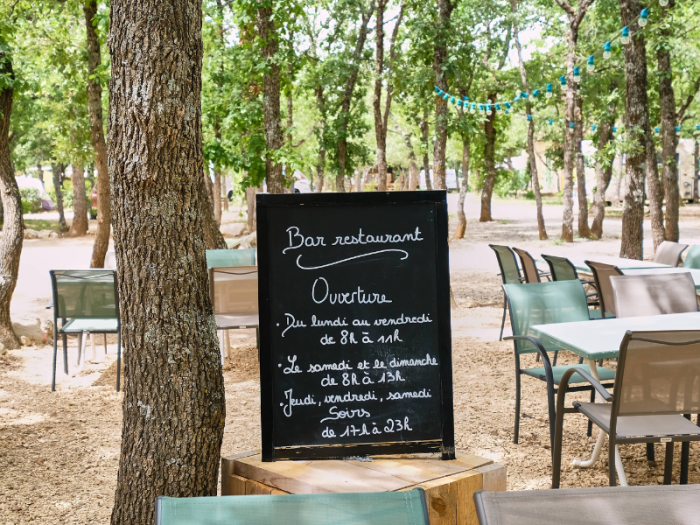 Bar restaurant
Ouverture
• Du lundi au vendredi
de 8h à 11h
• Le samedi et le dimanche
de 8h à 13h
• Jeudi, vendredi, samedi
Soirs
de 17h à 23h